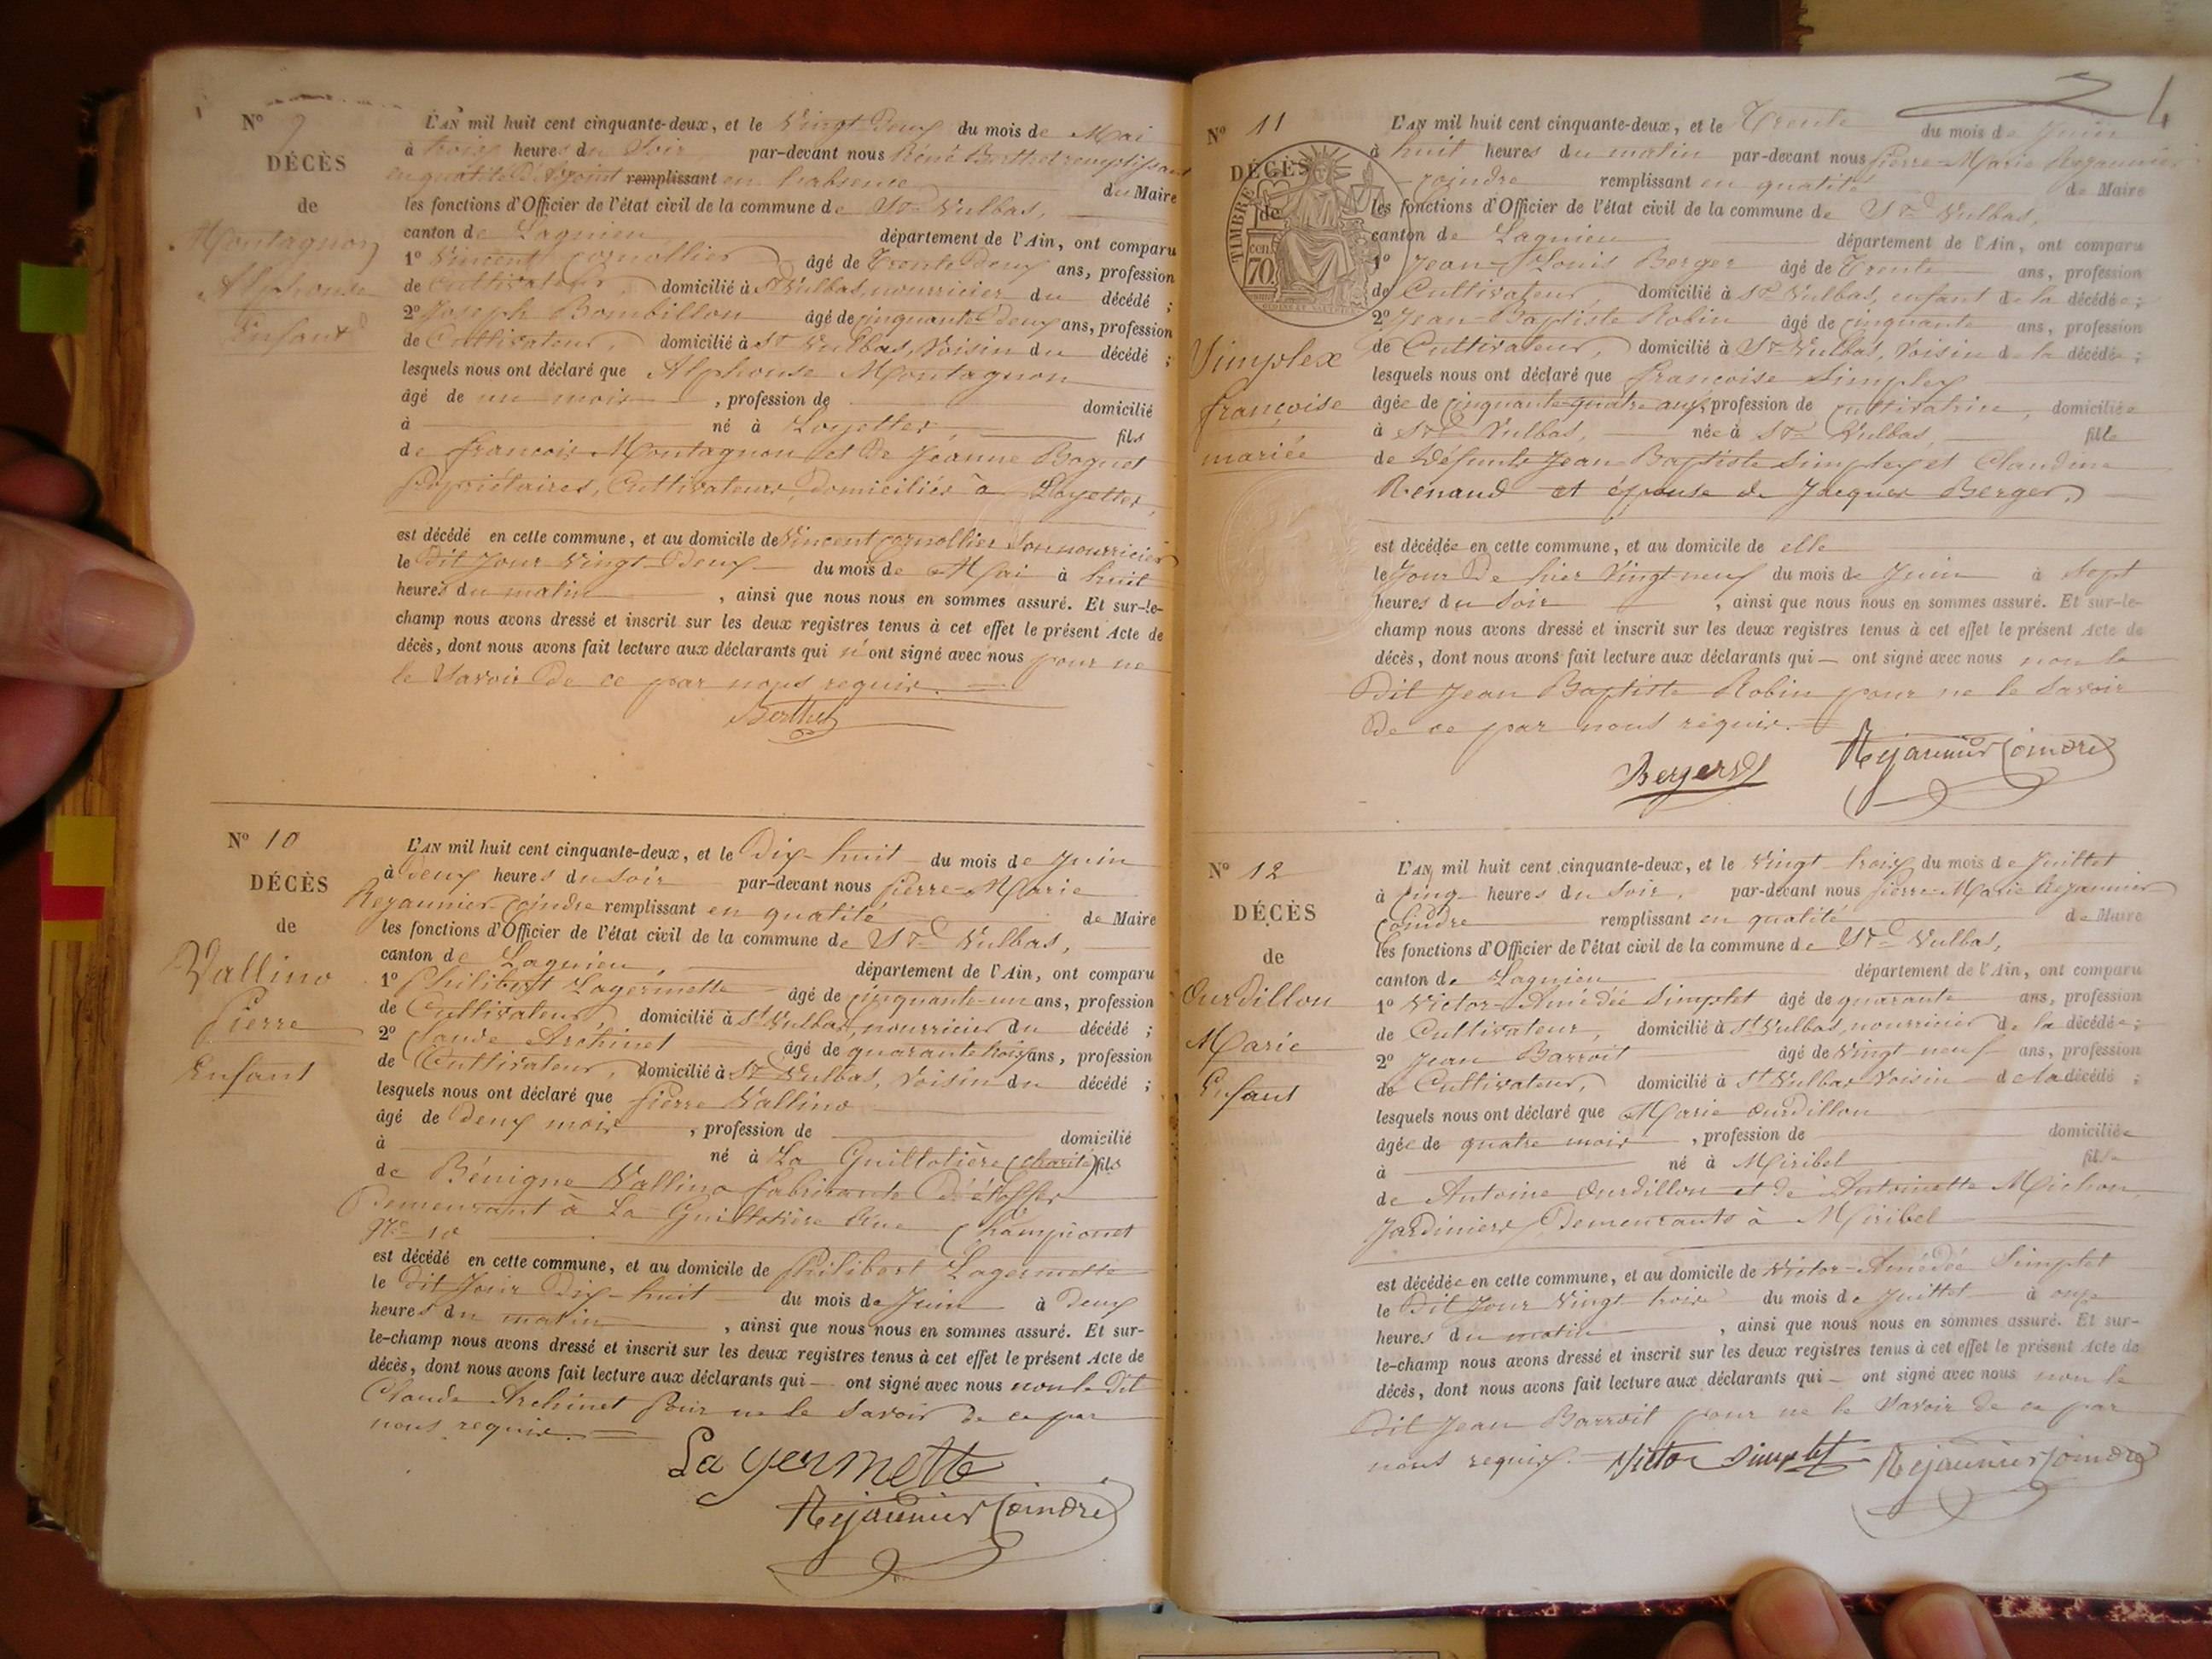 N° 9
DÉCÈS
de
Montagnon
Alphonse
Enfant
L'AN mil huit cent cinquante-deux, et le Vingt-Deux du mois de Mai
à trois heures du Soir par-devant nous Réné Berthet remplissant
en qualité d'Adjoint remplissant en l'absence du Maire
les fonctions d'Officier de l'état civil de la commune de St Vulbas,
canton de Lagnieu département de l'Ain, ont comparu
1° Vincent Cornollier âgé de Trente Deux ans, profession
de Cultivateur, domicilié à St Vulbas, nourricier du décédé ;
2° Joseph Bombillon âgé de cinquante-Deux ans, profession
de Cultivateur, domicilié à St Vulbas, Voisin du décédé ;
lesquels nous ont déclaré que Alphonse Montagnon
âgé de un mois , profession de domicilié
à né à Loyettes, fils
de françois Montagnon et de Jeanne Boguet
Propriétaires, Cultivateurs, Domiciliés à Loyettes,
est décédé en cette commune, et au domicile de Vincent Cornollier Son nourricier
le Dit Jour Vingt-Deux du mois de Mai à huit
heures du matin , ainsi que nous nous en sommes assuré. Et sur-le-
champ nous avons dressé et inscrit sur les deux registres tenus à cet effet le présent Acte de
décès, dont nous avons fait lecture aux déclarants qui n'ont signé avec nous pour ne
le Savoir De ce par nous requis.
Berthet
N° 10
DÉCÈS
de
Vallino
Pierre
Enfant
L'AN mil huit cent cinquante-deux, et le Dix-huit du mois de Juin
à Deux heures du soir par-devant nous Pierre-Marie
Rejaunier-Coindre remplissant en qualité de Maire
les fonctions d'Officier de l'état civil de la commune de St Vulbas,
canton de Lagnieu, département de l'Ain, ont comparu
1° Philibert Lagermette âgé de cinquante-un ans, profession
de Cultivateur, domicilié à St Vulbas, nourricier du décédé ;
2° Claude Archinet âgé de quarante trois ans, profession
de Cultivateur, domicilié à St Vulbas, Voisin du décédé ;
lesquels nous ont déclaré que Pierre Vallino
âgé de Deux mois , profession de domicilié
à né à La Guillotière (charité) fils
de Bénigne Vallino fabricante D'étoffes
Demeurant à La Guillotière Rue Championet
N° 10
est décédé en cette commune, et au domicile de Philibert Lagermette
le Dit Jour Dix-huit du mois de Juin à Deux
heures du matin , ainsi que nous nous en sommes assuré. Et sur-
le-champ nous avons dressé et inscrit sur les deux registres tenus à cet effet le présent Acte de
décès, dont nous avons fait lecture aux déclarants qui ont signé avec nous non le Dit
Claude Archinet Pour ne le Savoir de ce par
nous requis.
Lagermette
Rejaunier Coindre
N° 11
DÉCÈS
de
TIMBRE
70 cen
Simplex
françoise
mariée
L'AN mil huit cent cinquante-deux, et le Trente du mois de Juin
à huit heures du matin par-devant nous Pierre-Marie Rejaunier
Coindre remplissant en qualité de Maire
les fonctions d'Officier de l'état civil de la commune de St Vulbas,
canton de Lagnieu département de l'Ain, ont comparu
1° Jean-Louis Berger âgé de Trente ans, profession
de Cultivateur, domicilié à St Vulbas, enfant de la décédée ;
2° Jean-Baptiste Robin âgé de cinquante ans, profession
de Cultivateur, domicilié à St Vulbas, Voisin de la décédée ;
lesquels nous ont déclaré que françoise Simplex
âgée de cinquante-quatre ans, profession de cultivatrice, domiciliée
à St Vulbas, née à St Vulbas, fille
de Défunts Jean Baptiste Simplex et Claudine
Renaud et épouse de Jacques Berger,
est décédée en cette commune, et au domicile de elle
le Jour De hier Vingt-neuf du mois de Juin à Sept
heures du Soir , ainsi que nous nous en sommes assuré. Et sur-le-
champ nous avons dressé et inscrit sur les deux registres tenus à cet effet le présent Acte de
décès, dont nous avons fait lecture aux déclarants qui ont signé avec nous non le
Dit Jean Baptiste Robin pour ne le Savoir
De ce par nous requis.
Berger
Rejaunier Coindre
N° 12
DÉCÈS
de
Ourdillon
Marie
Enfant
L'AN mil huit cent cinquante-deux, et le Vingt trois du mois de Juillet
à Cinq heures du Soir, par-devant nous Pierre-Marie Rejaunier
Coindre remplissant en qualité de Maire
les fonctions d'Officier de l'état civil de la commune de St Vulbas,
canton de Lagnieu département de l'Ain, ont comparu
1° Victor-Amédée Simplet âgé de quarante ans, profession
de Cultivateur, domicilié à St Vulbas, nourricier de la décédée ;
2° Jean Barroit âgé de Vingt-neuf ans, profession
de Cultivateur, domicilié à St Vulbas Voisin de la décédé ;
lesquels nous ont déclaré que Marie Ourdillon
âgée de quatre mois , profession de domiciliée
à né à Miribel fille
de Antoine Ourdillon et de Antoinette Michon,
Jardiniers Demeurants à Miribel
est décédée en cette commune, et au domicile de Victor-Amédée Simplet
le Dit Jour Vingt trois du mois de Juillet à onze
heures du matin , ainsi que nous nous en sommes assuré. Et sur-
le-champ nous avons dressé et inscrit sur les deux registres tenus à cet effet le présent Acte de
décès, dont nous avons fait lecture aux déclarants qui ont signé avec nous non le
Dit Jean Barroit pour ne le Savoir De ce par
nous requis. Victor Simplet Rejaunier Coindre